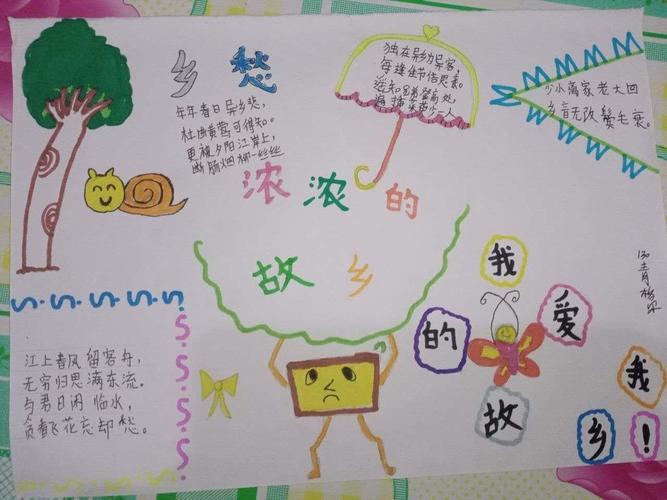 乡愁
年年春日异乡悲,
杜曲黄莺可得知。
更被夕阳江岸上,
断肠烟柳一丝丝
独在异乡为异客,
每逢佳节倍思亲。
遥知兄弟登高处,
遍插茱萸少一人
少小离家老大回
乡音无改鬓毛衰。
浓浓的
故乡
江上春风留客舟,
无穷归思满东流。
与君日闲临水,
贪看飞花忘却愁。
我爱
的
故
我
乡!